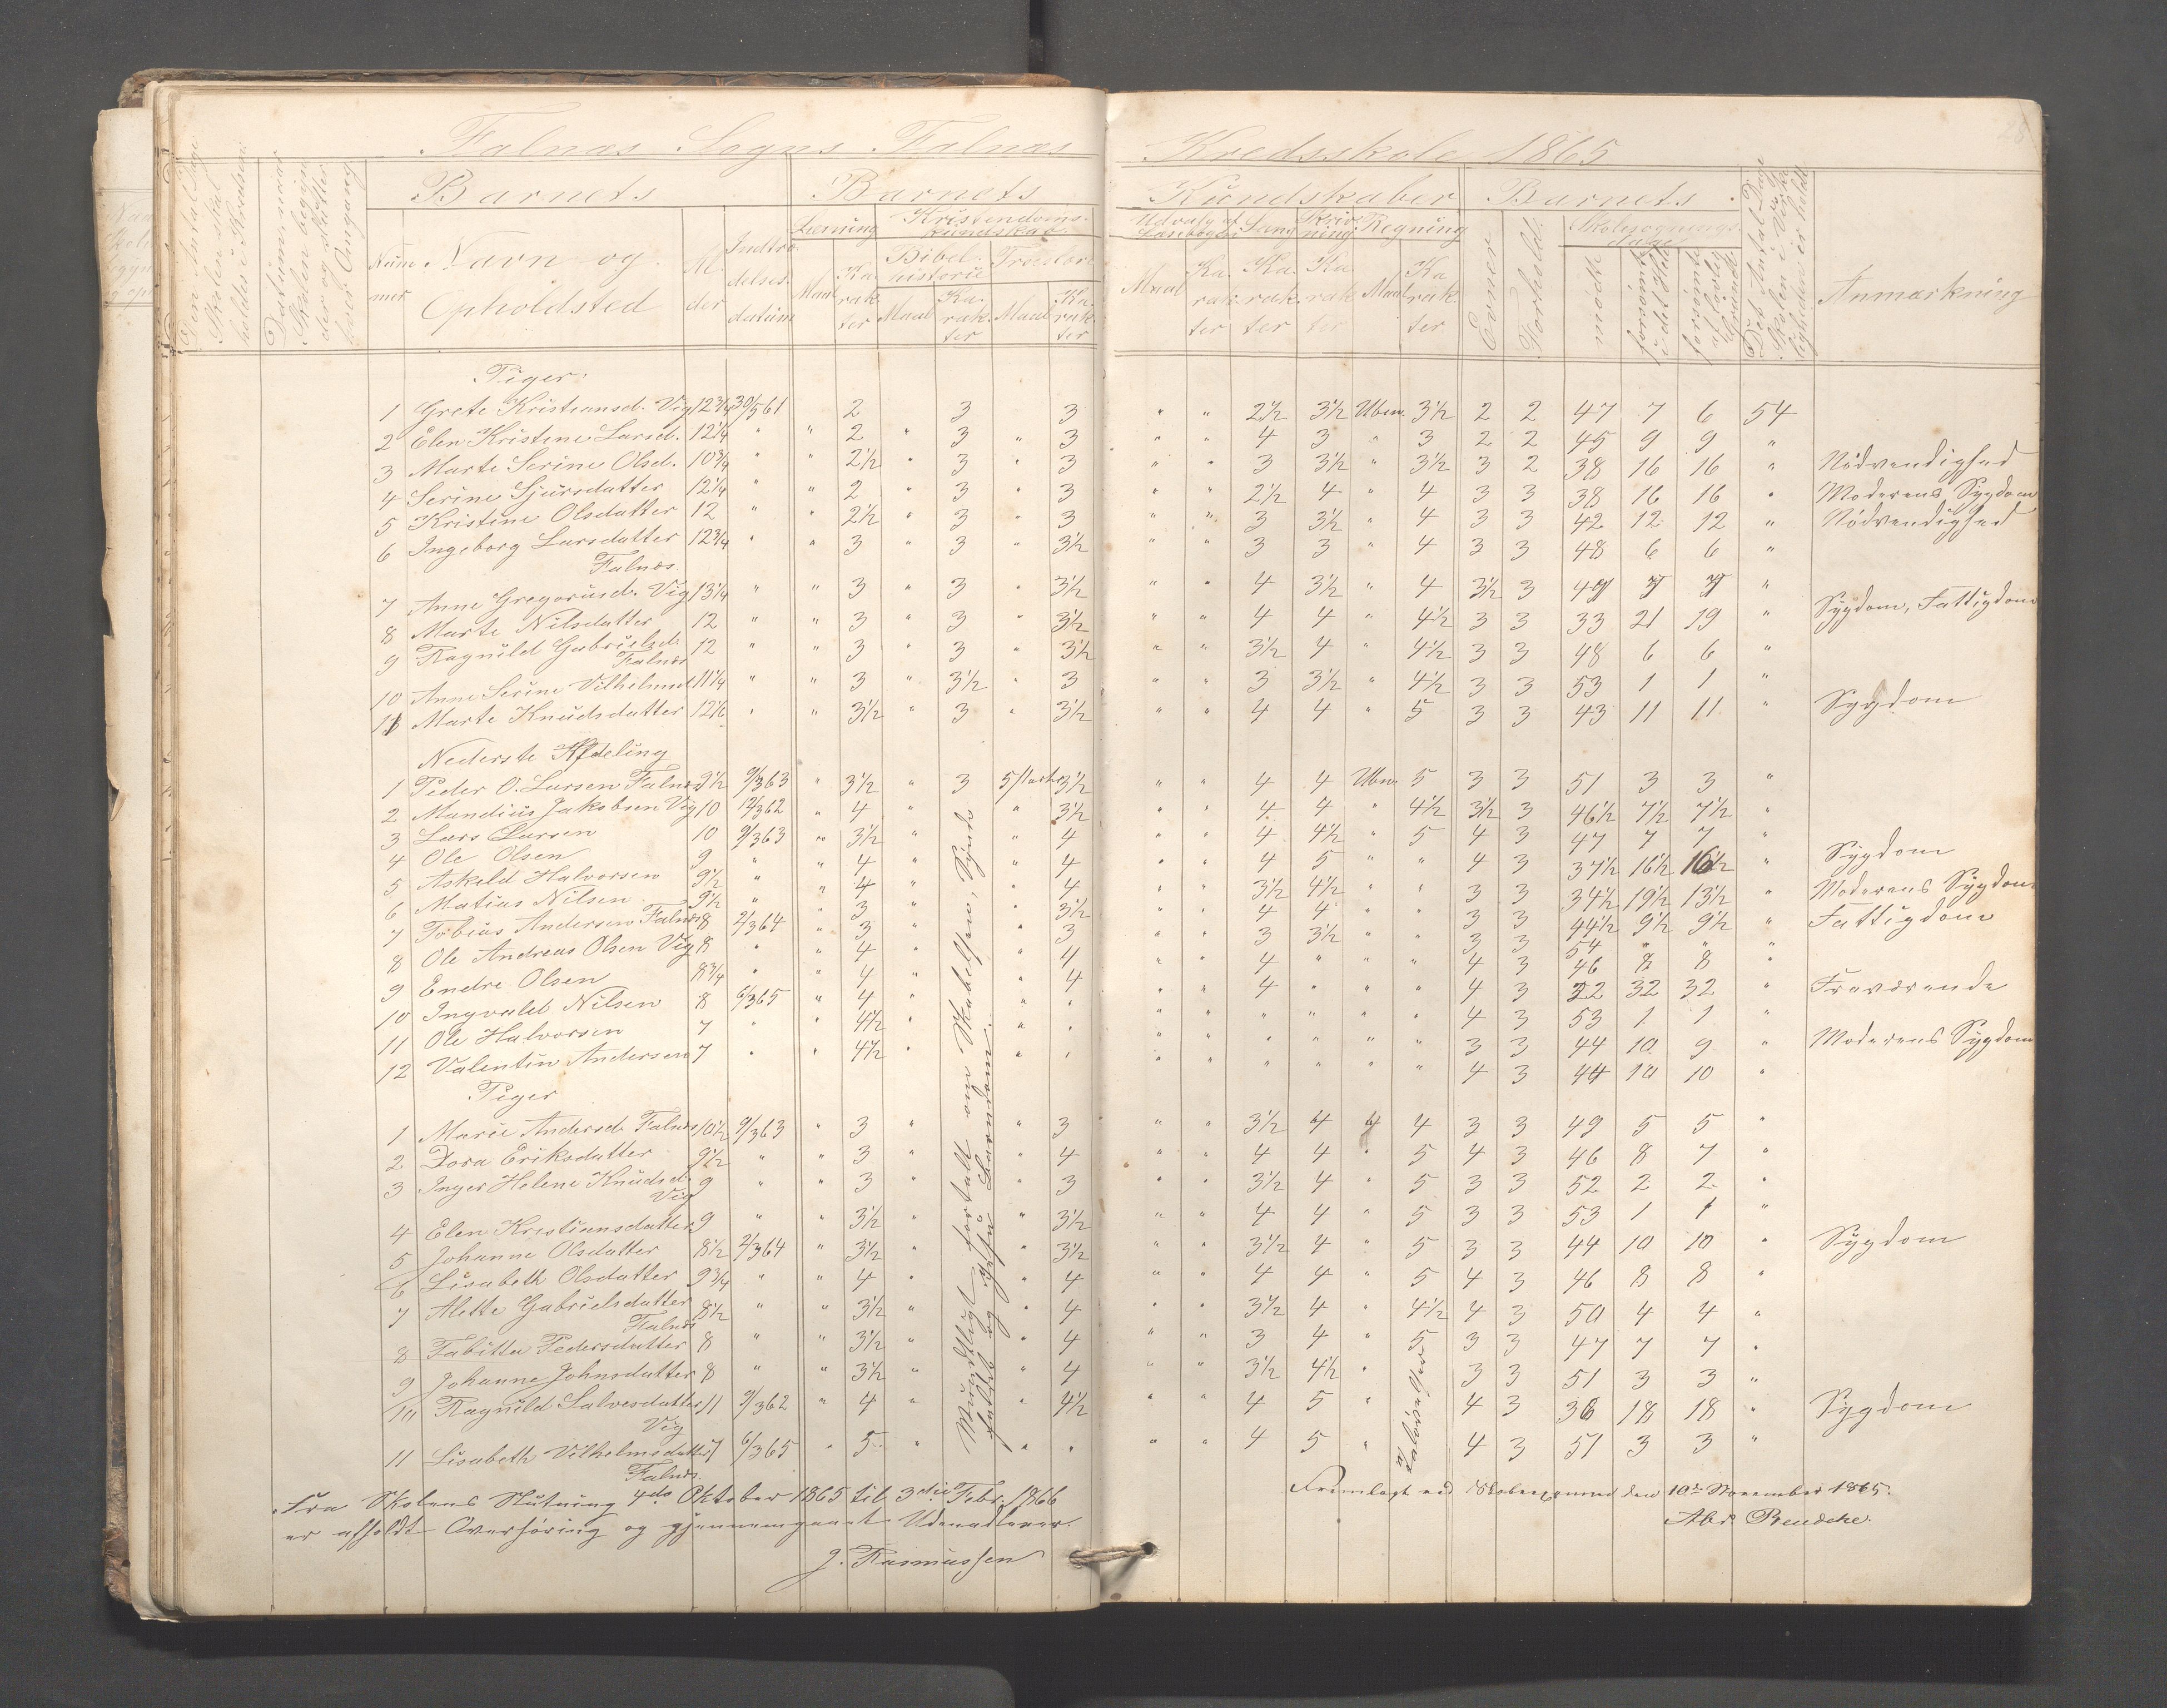 Falnæs Sogns Falnæs Kredsskole 1865
Det Antal Dage Skolen skal holdes i Kredsen
Datum, naar Skolen begynder og slutter hver Omgang
Barnets
Nummer
Navn og Opholdsted
Alder
Indtrædelses datum
Barnets Kundskaber
Læsning
Maal
Karakter
Kristendoms kundskab
Bibelhistorie
Maal
Karakter
Troeslære
Maal
Karakter
Udvalg af Læsebogen
Maal
Karakter
Sang
Karakter
Skrivning
Karakter
Regning
Maal
Karakter
Barnets
Evner
Forhold
Skolesøgnings dage
mødt
forsømte i det Hele
forsømte af lovlig Grund
Det Antal Dage Skolen i Virkeligheden er holdt
Anmærkning
Piger
1 Grete Kristiansd. Vig 12 3/4 30/5 61 2 3 3 " " 2 1/2 3 1/2 Uben. 3 1/2 2 2 47 7 6 54
2 Elen Kristine Larsd. 12 1/4 " " 2 " 3 " 3 " " 4 3 " 3 2 2 45 9 9 "
3 Marte Serine Olsd. 10 3/4 " " 2 1/2 " 3 " 3 " " 3 3 1/2 " 3 1/2 3 2 38 16 16 " Nødvendighed
4 Serine Sjursdatter 12 1/4 " " 2 " 3 " 3 " " 2 1/2 4 " 4 3 3 38 16 16 " Moderens Sygdom
5 Kristine Olsdatter 12 " " 2 1/2 " 3 " 3 " " 3 3 1/2 " 4 3 3 42 12 12 " Nødvendighed
6 Ingeborg Larsdatter 12 3/4 " " 3 " 3 " 3 1/2 " " 3 3 " 4 3 3 48 6 6 "
Falnæs
7 Anne Gregoriusd. Vig 13 1/4 " " 3 " 3 " 3 1/2 " " 4 3 1/2 " 4 3 1/2 3 "
8 Marte Nilsdatter 12 " " 3 " 3 " 3 1/2 " " 4 4 " 4 1/2 3 3 33 21 19 " Sygdom, Fattigdom
9 Ragnild Gabrielsd. 12 " " 3 " 3 " 3 1/2 " " 3 1/2 4 " 4 1/2 3 3 48 6 6 "
Falnæs
10 Anne Serine Vilhelmsd 11 1/4 " " 3 " 3 1/2 " 3 " " 3 3 1/2 " 4 1/2 3 3 53 1 1 "
11 Marte Knudsdatter 12 1/6 " " 3 1/2 " 3 " 3 1/2 " " 4 4 " 5 3 3 43 11 11 " Sygdom
Nederste Afdeling
1 Peder O. Larsen Falnæs 9 1/2 9/3 63 " 3 1/2 " 3 3 1/2 " " 4 4 Uben 5 3 3 51 3 3 "
2 Mandius Jakobsen Vig 10 12/3 62 " 4 " " 3 1/2 " " 4 4 " 4 1/2 3 1/2 3 46 1/2 7 1/2 7 1/2 "
3 Lars Larsen 10 9/3 63 " 3 1/2 " " 4 " " 4 4 1/2 " 5 4 3 47 7 7 "
4 Ole Olsen 9 " " 4 " " 4 " " 4 5 " " 4 3 37 1/2 16 1/2 16 1/2 " Sygdom
5 Askild Halvorsen 9 1/2 " " 4 " " 4 " " 3 1/2 4 1/2 " " 3 3 34 1/2 19 1/2 13 1/2 " Moderens Sygdom
6 Matias Nilsen 9 1/2 " " 3 " " 3 1/2 " " 4 4 " " 3 3 44 1/2 9 1/2 9 1/2 " Fattigdom
7 Tobias Andersen Falnæs 8 2/3 64 " 3 " " 3 " " 3 3 1/2 " " 3 3 54 " " "
8 Ole Andreas Olsen Vig 8 " " 4 " " 4 " " 4 " " " 4 3 46 8 8 "
9 Endre Olsen 8 3/4 " " 4 " " 4 " " 4 " " " 4 3 22 32 32 " Fraværende
10 Ingvald Nilsen 8 6/3 65 " 4 " " " " " " " " " 4 3 53 1 1 "
11 Ole Halvorsen 7 " " 4 1/2 " " " " " " " " " 3 3 44 10 9 " Moderens Sygdom
12 Valentin Andersen 7 " " 4 1/2 " " " " " " " " " 4 3 44 10 10 "
Mundtligt fortalt om Skabelsen, Synde
faldet og Jesu Barndom.
Piger
1 Marie Andersd. Falnæs 10 1/2 9/3 63 " 3 " " 3 " " 3 1/2 4 4 4 3 3 49 5 5 "
2 Dora Eriksdatter 9 1/2 " " 3 " " 4 " " 4 4 " 5 4 3 46 8 7 "
3 Inger Helene Knudsd. 9 " " 3 " " 3 " " 3 1/2 4 " 5 3 3 52 2 2 "
Vig
4 Elen Kristiansdatter 9 " " 3 1/2 " " 3 1/2 " " 4 4 " 5 3 3 53 1 1 "
5 Johanne Olsdatter 8 1/2 2/3 64 " 3 1/2 " " 3 1/2 " " 3 1/2 4 " 5 3 3 44 10 10 " Sygdom
6 Lisabeth Olsdatter 9 3/4 " " 4 " " 4 " " 4 4 " 5 4 3 46 8 8 "
7 Alette Gabrielsdatter 8 1/2 " " 3 1/2 " " 4 " " 3 1/2 4 " 4 1/2 4 3 50 4 4 "
Falnæs
8 Tabitta Pedersdatter 8 " " 3 1/2 " " 4 " " 3 4 " 5 3 3 47 7 7 "
9 Johanne Johnsdatter 8 " " 3 1/2 " " 4 " " 3 1/2 4 1/2 " 3 3 51 3 3 "
10 Ragnild Salvesdatter 11 9/3 62 " 4 " " 4 1/2 " " 4 5 " 4 3 36 18 18 " Sygdom
Vig
11 Lisabeth Vilhelmsdatter 7 6/3 65 " 5 " " " " " 4 5 " 4 3 51 3 3 "
Falnæs.
Fra Skolens Slutning 4de Oktober 1865 til 3die Febr. 1866
er afholdt Overhøring og gjennemgaaet Udenadlexer.
J. Rasmussen
Fremlagt ved den 10de November 1865.
Abr.